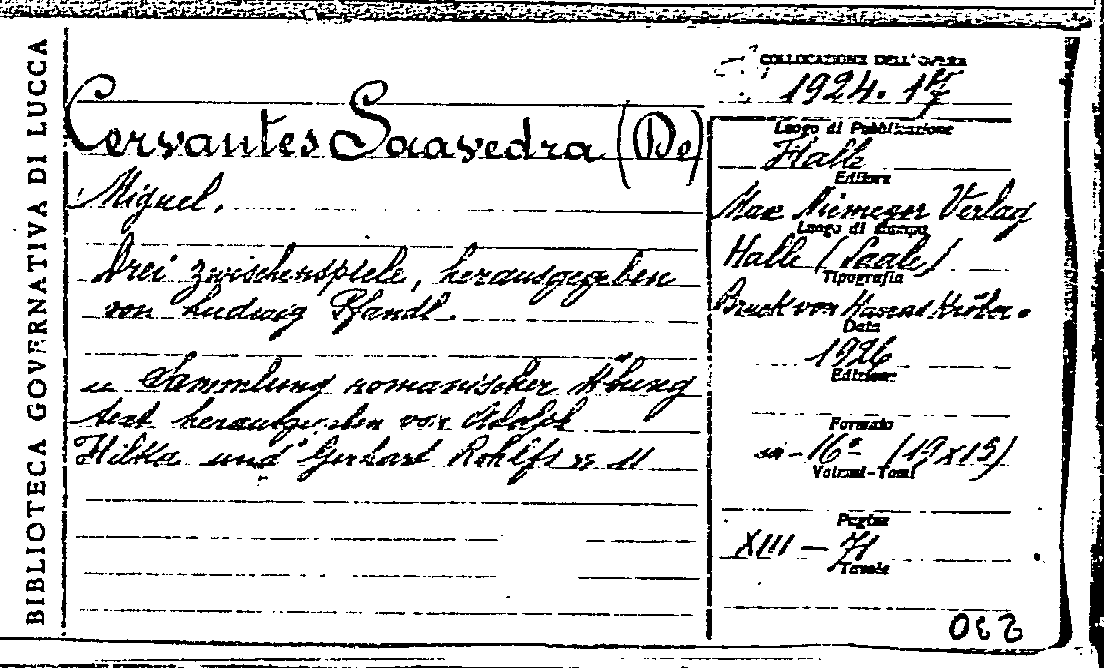 BIBLIOTECA GOVERNATIVA DI LUCCA
Cervantes Saavedra (De)
Miguel.
Drei zwischenspiele, herausgegeben
von Ludwig Pfandl.
Sammlung romanischer Übung
text herausgegeben von Adolph
Hilka und Gerhart Rohlfs n 11
COLLOCAZIONE DELL'OPERA
1924. 17
Luogo di Pubblicazione
Halle
Editore
Max Niemeyer Verlag
Luogo di stampa
Halle (Saale)
Tipografia
Druck von Karras Kröber.
Data
1926
Edizione
Formato
in-16º (19x13)
Volumi-Tomi
Pagine
XIII - 71
Tavole
230